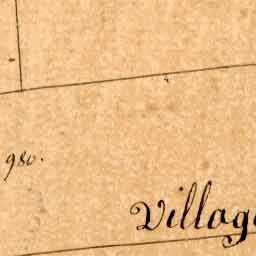 980.
Village